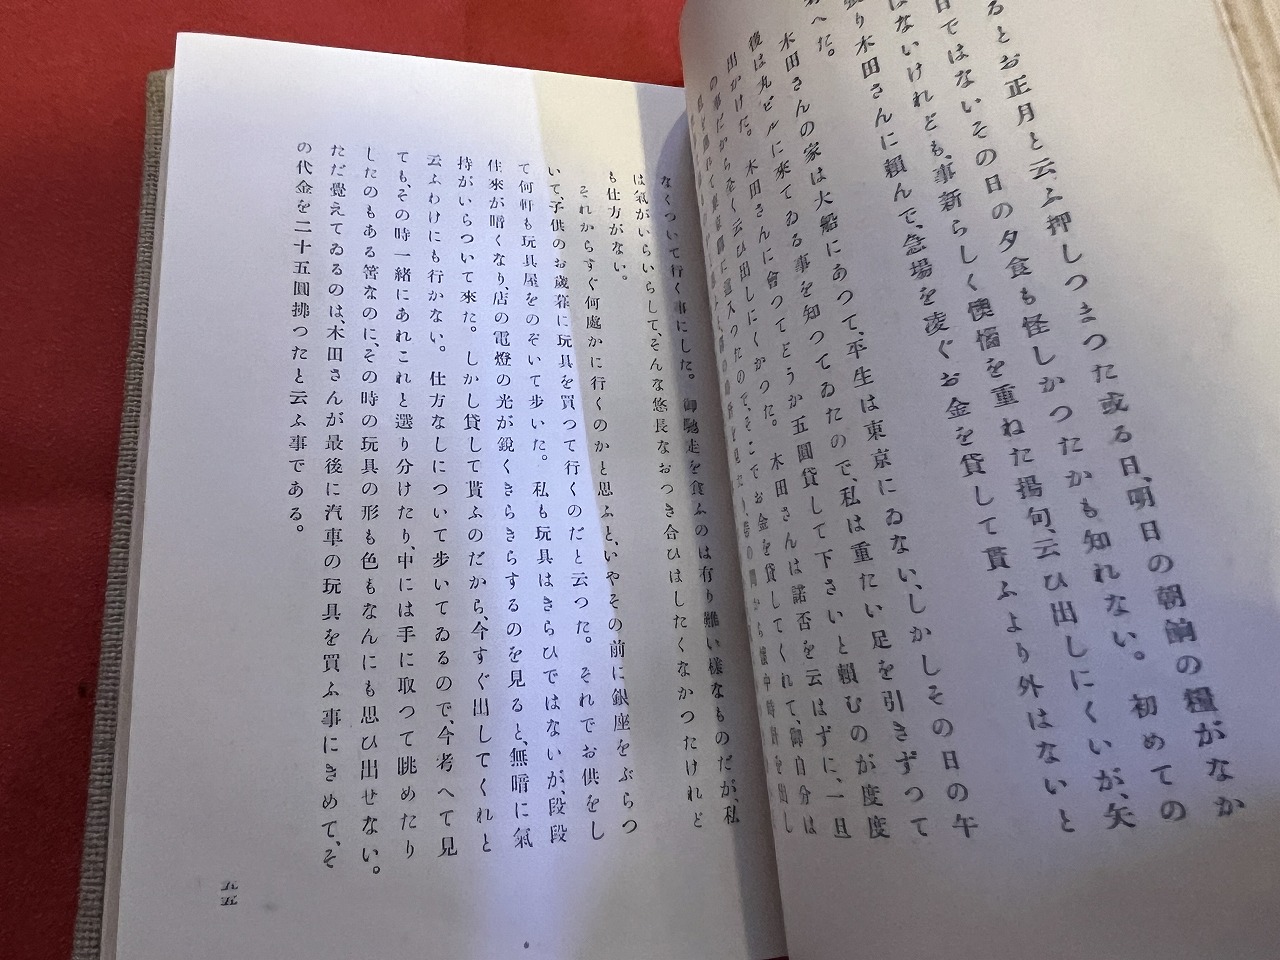 るとお正月と云ふ押しつまつた或る日、明日の朝餉の糧がなか
日ではないその日の夕食も怪しかつたかも知れない。初めての
はないけれども、事新らしく懊惱を重ねた揚句、云ひ出しにくいが、矢
張り木田さんに賴んで、急場を凌ぐお金を貸して貰ふより外はないと
へた。
木田さんの家は大船にあつて、平生は東京にゐない、しかしその日の午
後は丸ビルに來てゐる事を知つてゐたので、私は重たい足を引きずつて
出かけた。木田さんに會つてどうか五圓貸して下さいと賴むのが度度
の事だから全く云ひ出しにくかつた。木田さんは諾否を云はずに、一旦
たので、そこでお金を貸してくれて、御自分は
なくついて行く事にした。御馳走を食ふのは有り難い樣なものだが、私
は氣がいらいらして、そんな悠長なおつき合ひはしたくなかつたけれど
も仕方がない。
それからすぐ何處かに行くのかと思ふと、いやその前に銀座をぶらつ
いて、子供のお歲暮に玩具を買つて行くのだと云つた。それでお供をし
て何軒も玩具屋をのぞいて步いた。私も玩具はきらひではないが、段段
往來が暗くなり、店の電燈の光が銳くきらきらするのを見ると、無暗に氣
持がいらついて來た。しかし貸して貰ふのだから、今すぐ出してくれと
云ふわけにも行かない。仕方なしについて步いてゐるので、今考へて見
ても、その時一緖にあれこれと選り分けたり、中には手に取つて眺めたり
したのもある筈なのに、その時の玩具の形も色もなんにも思ひ出せない。
ただ覺えてゐるのは、木田さんが最後に汽車の玩具を買ふ事にきめて、そ
の代金を二十五圓拂つたと云ふ事である。
五五